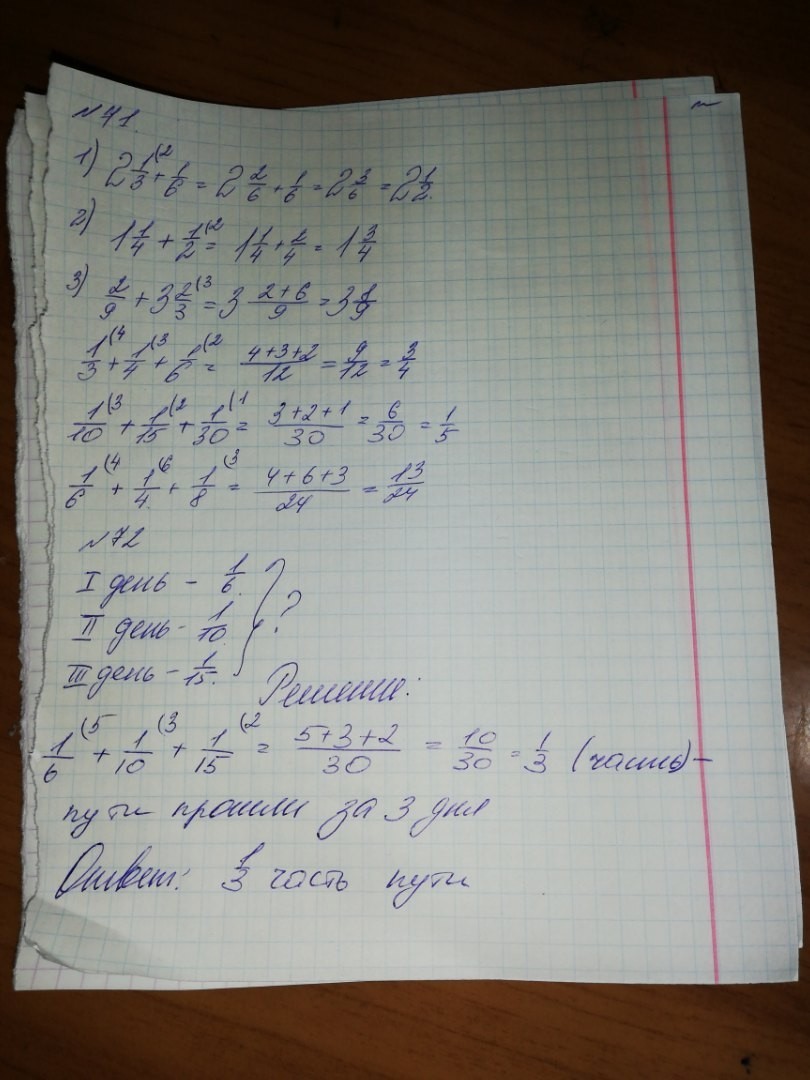 № 41.
1) 2 1/3 (2 + 1/6 = 2 2/6 + 1/6 = 2 3/6 = 2 1/2.
2) 1 1/4 + 1/2 (2 = 1 1/4 + 2/4 = 1 3/4
3) 2/9 + 3 2/3 (3 = 3 (2+6)/9 = 3 8/9
1/3 (4 + 1/4 (3 + 1/6 (2 = (4+3+2)/12 = 9/12 = 3/4
1/10 (3 + 1/15 (2 + 1/30 (1 = (3+2+1)/30 = 6/30 = 1/5
1/6 (4 + 1/4 (6 + 1/8 (3 = (4+6+3)/24 = 13/24
№ 72
I день - 1/6.
II день - 1/10. } ?
III день - 1/15.
Решение:
1/6 (5 + 1/10 (3 + 1/15 (2 = (5+3+2)/30 = 10/30 = 1/3 (часть) -
пути прошли за 3 дня
Ответ: 1/3 часть пути